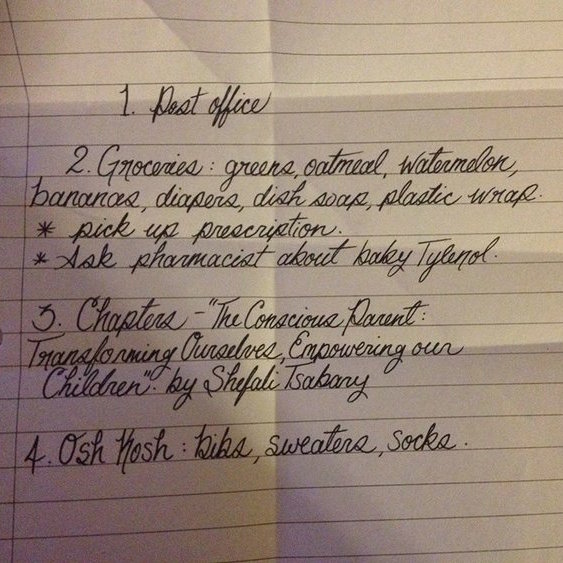 1. Post office
2. Groceries: greens, oatmeal, watermelon,
bananas, diapers, dish soap, plastic wrap.
* pick up prescription.
* Ask pharmacist about baby Tylenol.
3. Chapters - "The Conscious Parent:
Transforming Ourselves, Empowering our
Children". by Shefali Tsabary
4. Osh Kosh: bibs, sweaters, socks.